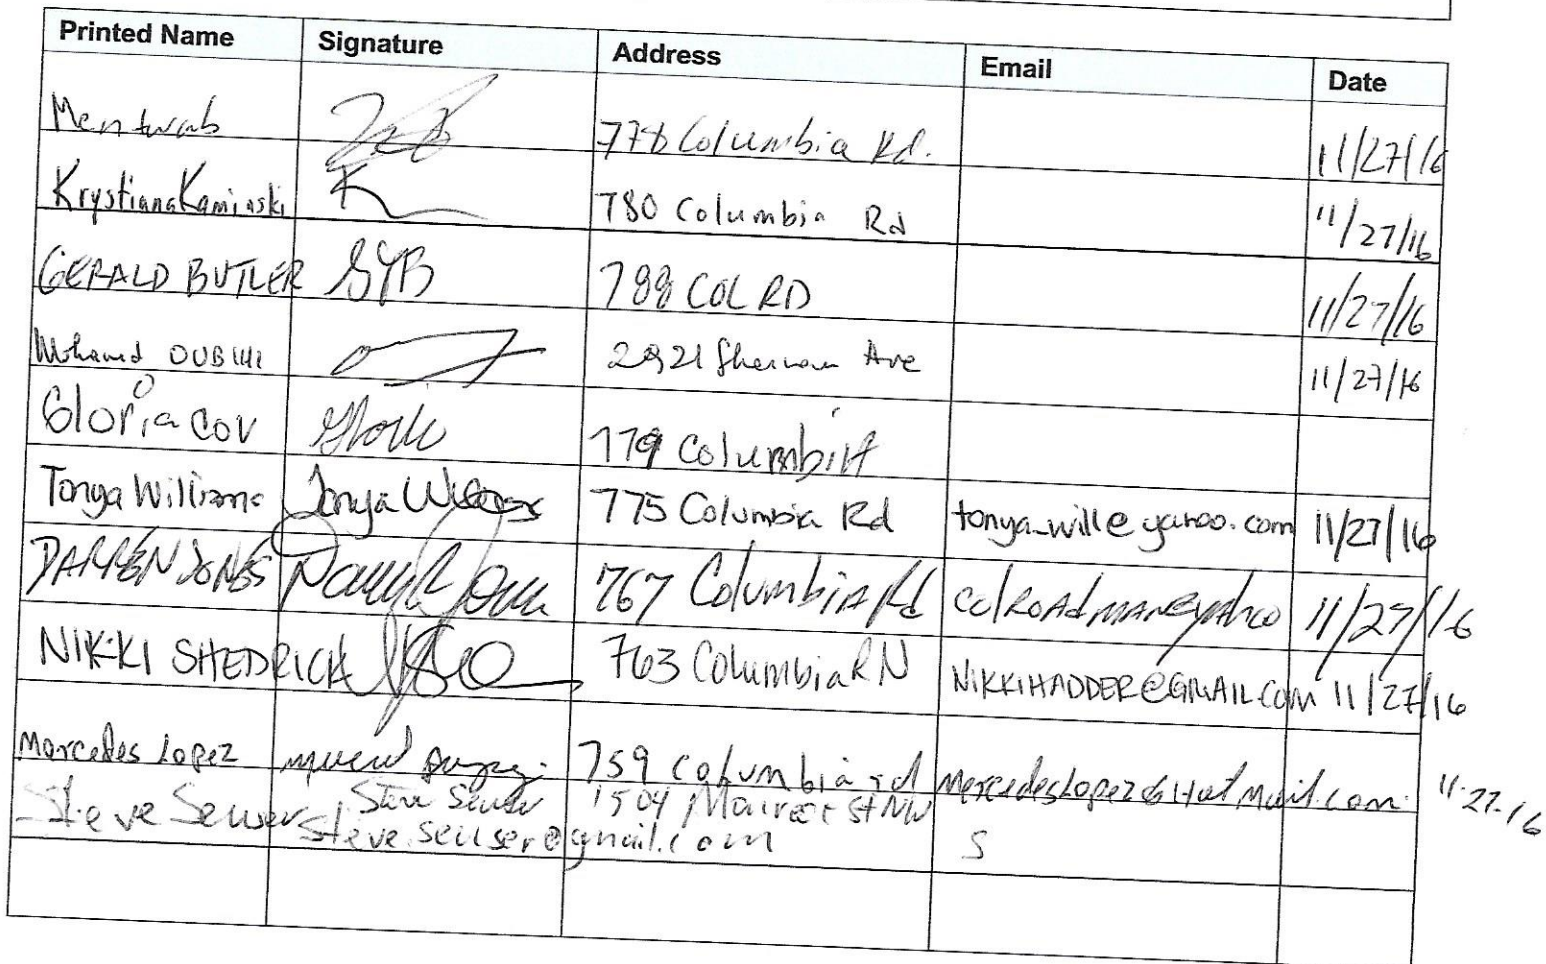 Printed Name Signature Address Email Date
Mentwab 778 Columbia Rd. 11/27/16
Krystiana Kaminski K 780 Columbia Rd 11/27/16
GERALD BUTLER GYB 788 COL RD 11/27/16
Mohamed 2921 Sherman Ave 11/27/16
Gloria Cov Gloria 779 Columbia
Tonya Williams Tonya Williams 775 Columbia Rd tonya_will@yahoo.com 11/27/16
DARREN JONES 767 Columbia Rd colROAdmAN@yAhoo 11/27/16
NIKKI SHEDRICK 763 Columbia R N NIKKIHADDER@GMAIL.COM 11/27/16
Mercedes Lopez 759 columbia rd MercedesLopez6Hotmail.com 11-27-16
Steve Seuser Steve Seuser 1504 St NW
steve.seuser@gmail.com S